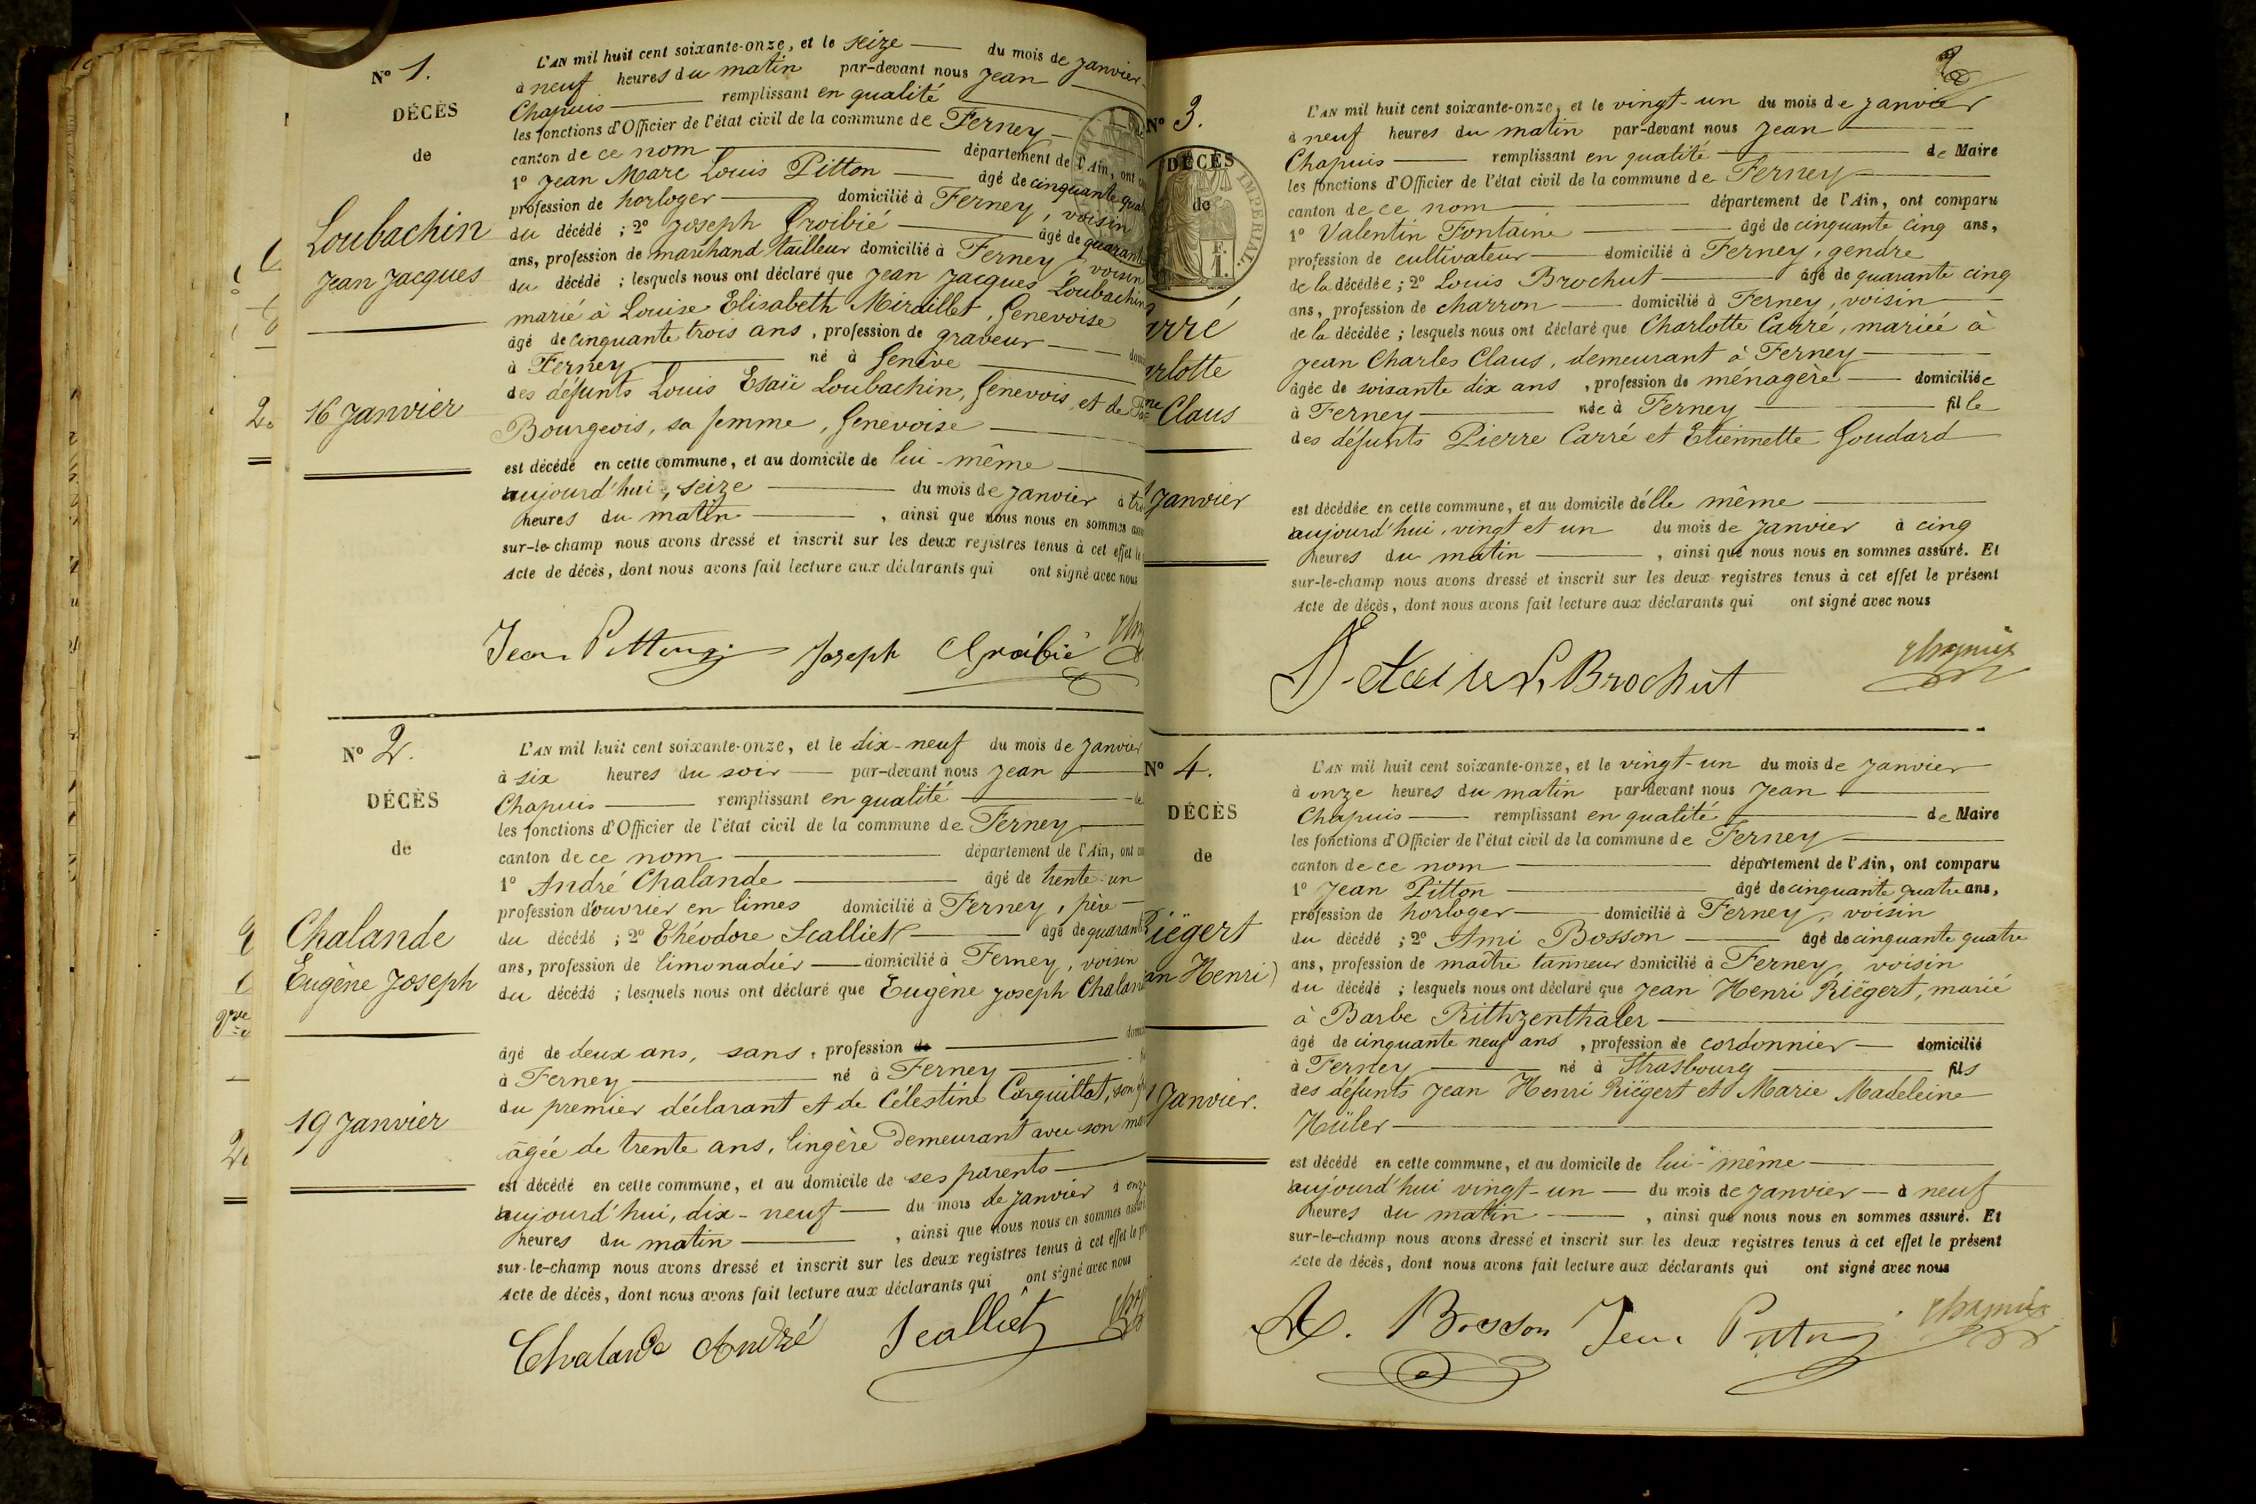 N° 1.
DÉCÈS
de
Loubachin
Jean Jacques
16 Janvier
L'AN mil huit cent soixante-onze, et le seize du mois de Janvier
à neuf heures du matin par-devant nous Jean
Chapuis remplissant en qualité
les fonctions d'Officier de l'état civil de la commune de Ferney
canton de ce nom département de l'Ain, ont
1° Jean Marc Louis Pitton âgé de cinquante
profession de horloger domicilié à Ferney, voisin
du décédé ; 2° Joseph Groibié âgé de quarante
ans, profession de marchand tailleur domicilié à Ferney, voisin
du décédé ; lesquels nous ont déclaré que Jean Jacques Loubachin
marié à Louise Elisabeth Miraillet, Genevoise
âgé de cinquante trois ans, profession de graveur
à Ferney né à Genève
des défunts Louis Esaïe Loubachin, Genevois, et de
Bourgeois, sa femme, Genevoise
est décédé en cette commune, et au domicile de lui-même
aujourd'hui, seize du mois de Janvier à
heures du matin , ainsi que nous nous en sommes
sur-le-champ nous avons dressé et inscrit sur les deux registres tenus à cet effet le
Acte de décès, dont nous avons fait lecture aux déclarants qui ont signé avec nous
Jean Pitton Joseph Groibié
N° 2.
DÉCÈS
de
Chalande
Eugène Joseph
19 Janvier
L'AN mil huit cent soixante-onze, et le dix-neuf du mois de Janvier
à six heures du soir par-devant nous Jean
Chapuis remplissant en qualité de
les fonctions d'Officier de l'état civil de la commune de Ferney
canton de ce nom département de l'Ain, ont
1° André Chalande âgé de trente-un
profession d'ouvrier en limes domicilié à Ferney, père
du décédé ; 2° Théodore Scalliet âgé de quarante
ans, profession de limonadier domicilié à Ferney, voisin
du décédé ; lesquels nous ont déclaré que Eugène Joseph
âgé de deux ans, sans, profession de
à Ferney né à Ferney
du premier déclarant et de Célestine Corquillat, son
âgée de trente ans, lingère demeurant avec son
est décédé en cette commune, et au domicile de ses parents
aujourd'hui, dix-neuf du mois de Janvier à
heures du matin , ainsi que nous nous en sommes
sur-le-champ nous avons dressé et inscrit sur les deux registres tenus à cet effet le
Acte de décès, dont nous avons fait lecture aux déclarants qui ont signé avec nous
Chalande André Scalliet
N° 3.
DÉCÈS
de
IMPÉRIAL
F.
1.
Claus
Janvier
L'AN mil huit cent soixante-onze, et le vingt-un du mois de Janvier
à neuf heures du matin par-devant nous Jean
Chapuis remplissant en qualité de Maire
les fonctions d'Officier de l'état civil de la commune de Ferney
canton de ce nom département de l'Ain, ont comparu
1° Valentin Fontaine âgé de cinquante cinq ans,
profession de cultivateur domicilié à Ferney, gendre
de la décédée ; 2° Louis Brochut âgé de quarante cinq
ans, profession de charron domicilié à Ferney, voisin
de la décédée ; lesquels nous ont déclaré que Charlotte Carré, mariée à
Jean Charles Claus, demeurant à Ferney
âgée de soixante dix ans, profession de ménagère domiciliée
à Ferney née à Ferney fille
des défunts Pierre Carré et Etiennette Goudard
est décédée en cette commune, et au domicile d'elle même
aujourd'hui, vingt et un du mois de Janvier à cinq
heures du matin , ainsi que nous nous en sommes assuré. Et
sur-le-champ nous avons dressé et inscrit sur les deux registres tenus à cet effet le présent
Acte de décès, dont nous avons fait lecture aux déclarants qui ont signé avec nous
L. Brochut Chapuis
N° 4.
DÉCÈS
de
Riëgert
Henri)
Janvier.
L'AN mil huit cent soixante-onze, et le vingt-un du mois de Janvier
à onze heures du matin par-devant nous Jean
Chapuis remplissant en qualité de Maire
les fonctions d'Officier de l'état civil de la commune de Ferney
canton de ce nom département de l'Ain, ont comparu
1° Jean Pitton âgé de cinquante quatre ans,
profession de horloger domicilié à Ferney, voisin
du décédé ; 2° Ami Bosson âgé de cinquante quatre
ans, profession de maître tanneur domicilié à Ferney, voisin
du décédé ; lesquels nous ont déclaré que Jean Henri Riëgert, marié
à Barbe Rithzenthaler
âgé de cinquante neuf ans, profession de cordonnier domicilié
à Ferney né à Strasbourg fils
des défunts Jean Henri Riëgert et Marie Madeleine
Hüler
est décédé en cette commune, et au domicile de lui-même
aujourd'hui vingt-un du mois de Janvier à neuf
heures du matin , ainsi que nous nous en sommes assuré. Et
sur-le-champ nous avons dressé et inscrit sur les deux registres tenus à cet effet le présent
Acte de décès, dont nous avons fait lecture aux déclarants qui ont signé avec nous
A. Bosson Jean Pitton Chapuis